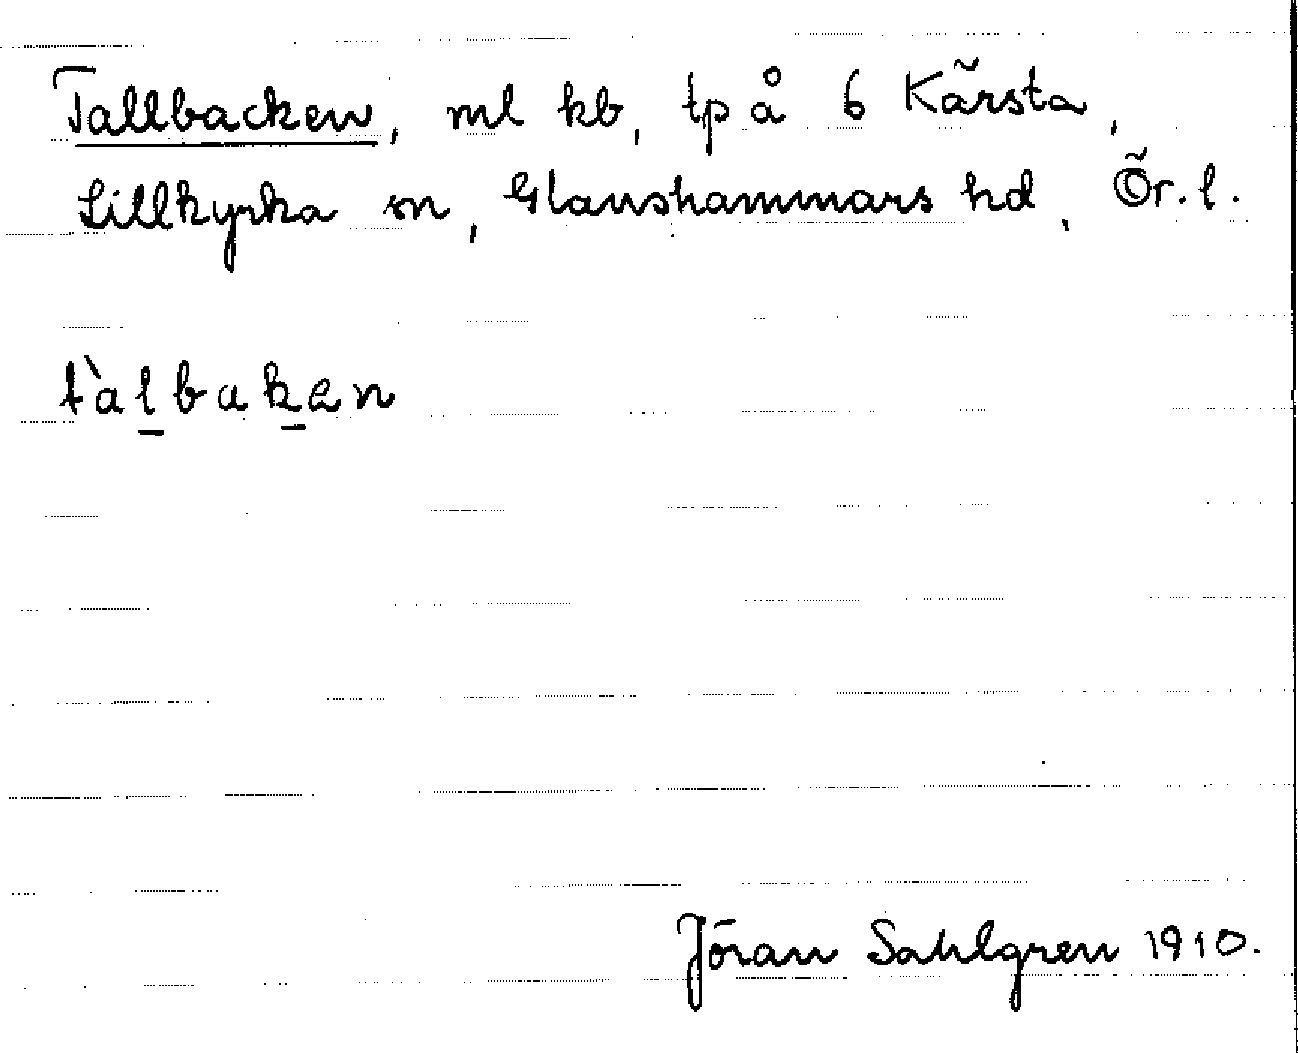 Tallbacken, ml kb, tp å 6 Kärsta,
Lillkyrka sn, Glanshammars hd, Ör. l.
tàlbakən
Jöran Sahlgren 1910.